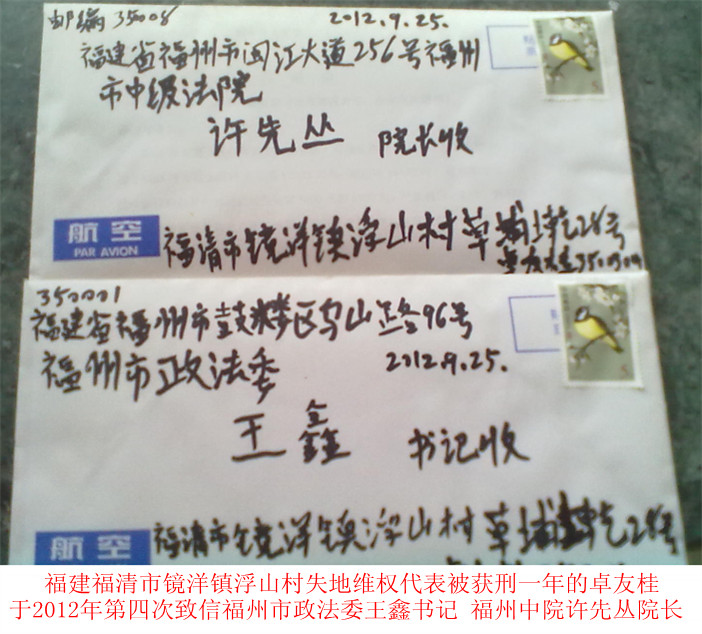 邮编 35008
2012.9.25.
福建省福州市闽江大道256号福州
市中级法院
许先丛 院长收
航空
PAR AVION
福清市镜洋镇浮山村草埔埕28号
卓友桂350304
350001
福建省福州市鼓楼区乌山路96号
福州市政法委
2012.9.25.
王鑫 书记收
航空
福清市镜洋镇浮山村草埔 28号
福建福清市镜洋镇浮山村失地维权代表被获刑一年的卓友桂
于2012年第四次致信福州市政法委王鑫书记 福州中院许先丛院长